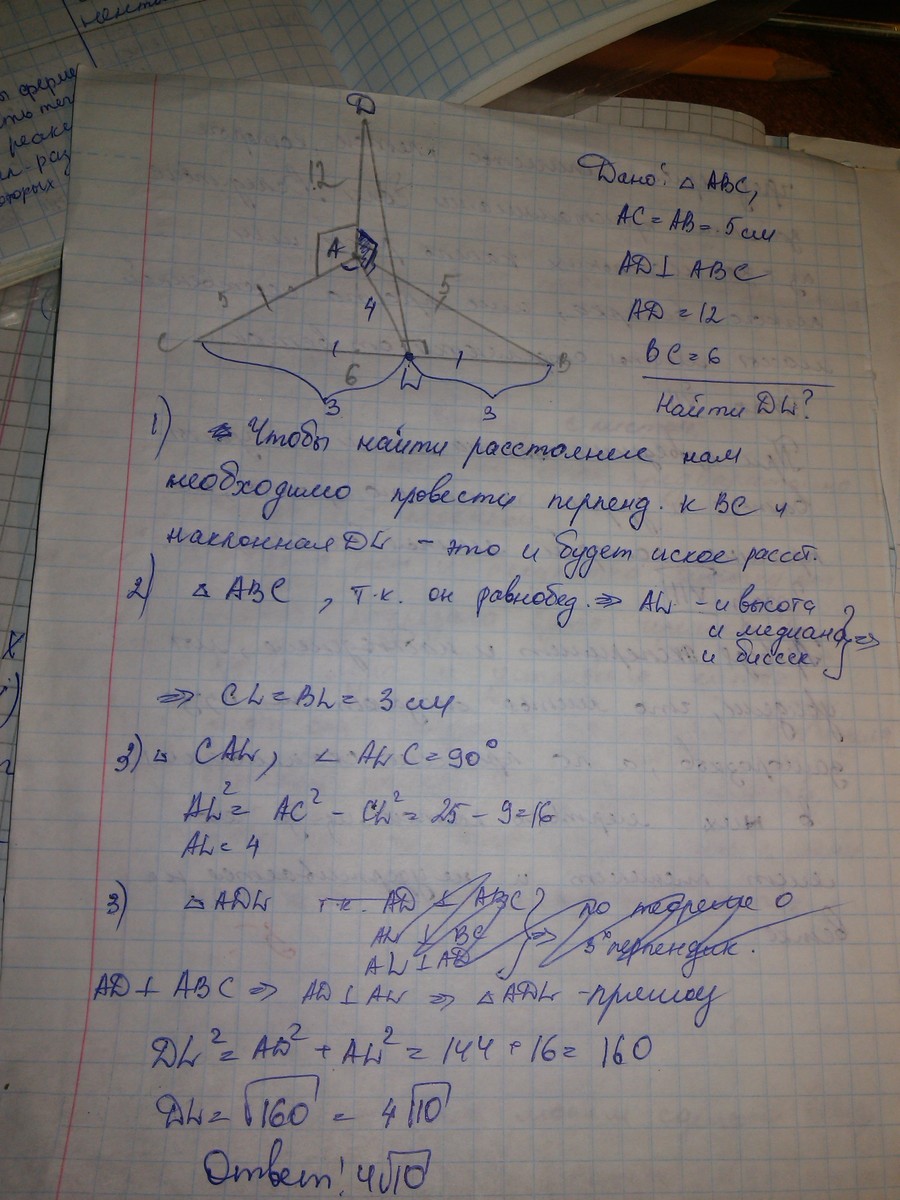 нента
ы ферме
реаке
оторых
D
12
A
5
5
4
C
B
6
L
3
3
Дано: △ ABC,
AC = AB = 5 см
AD ⊥ ABC
AD = 12
BC = 6
Найти DL?
1) Чтобы найти расстояние нам
необходимо провести перпенд. к BC и
наклонная DL - это и будет иское расст.
2) △ ABC, т.к. он равнобед. ⇒ AL - и высота
и медиана
и биссек } ⇒
⇒ CL = BL = 3 см
3) △ CAL, ∠ ALC = 90°
AL² = AC² - CL² = 25 - 9 = 16
AL = 4
3) △ ADL т.к. AD ⊥ ABC
AL ⊥ BC
AL ⊥ AD } ⇒ по теореме о
3ˣ перпендик.
AD ⊥ ABC ⇒ AD ⊥ AL ⇒ △ ADL - прямоу
DL² = AD² + AL² = 144 + 16 = 160
DL = √160 = 4√10
Ответ! 4√10